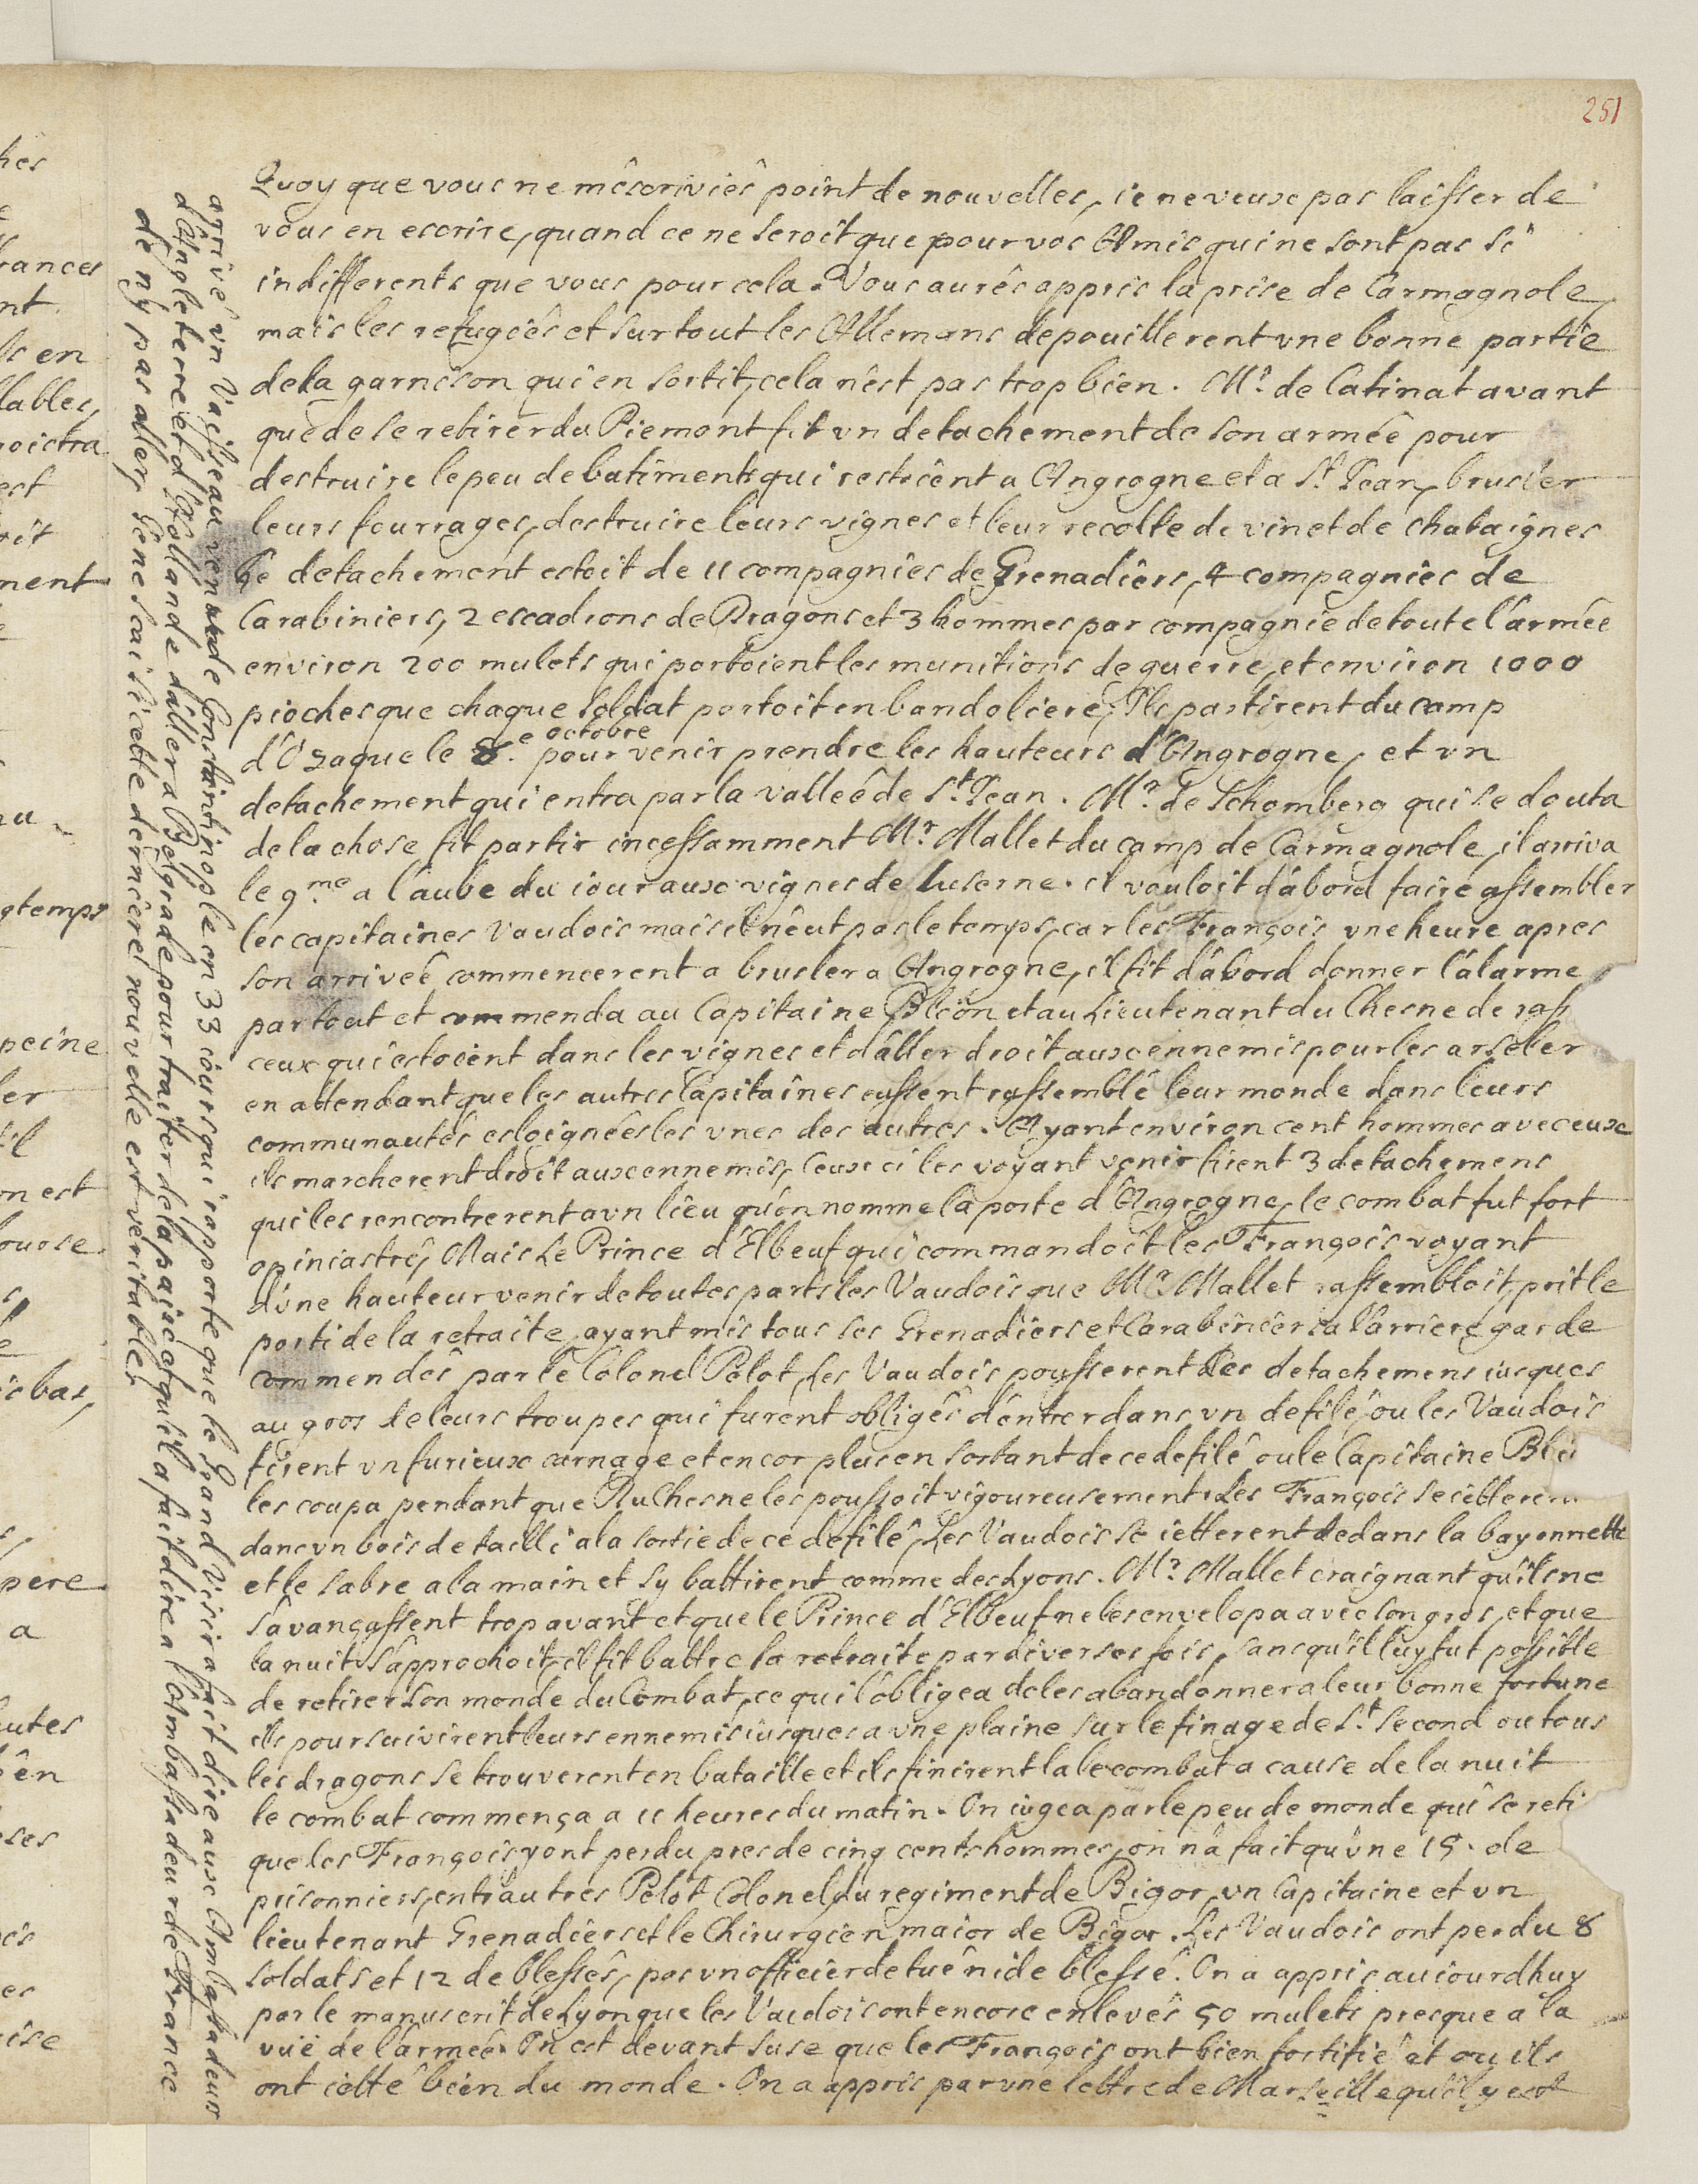 251
Quoy que vous ne m'escriviés point de nouvelles, ie ne veux pas laisser de
vous en escrire, quand ce ne seroit que pour vos Amis qui ne sont pas si
indifferents que vous pour cela. Vous aurés appris la prise de Carmagnole,
mais les refugiés et sur tout les Allemans depouillerent vne bonne partie
de la garnison qui en sortit, cela n'est pas trop bien. Mr. de Catinat avant
que de se retirer du Piemont fit vn detachement de son armée pour
destruire le peu de batiments qui restoient a Angrogne et a St. Jean, brusler
leurs fourrages, destruire leurs vignes et leur recolte de vin et de chataignes
Ce detachement estoit de 11 compagnies de Grenadiers, 4 compagnies de
Carabiniers, 2 escadrons de Dragons et 3 hommes par compagnie de toute l'armée
environ 200 mulets qui portoient les munitions de guerre, et environ 1000
pioches que chaque soldat portoit en bandoliere, Ils partirent du camp
d'Ozaque le 8e. octobre pour venir prendre les hauteurs d'Angrogne, et vn
detachement qui entra par la valleé de St. Jean. Mr. de Schomberg qui se douta
de la chose fit partir incessamment Mr. Mallet du camp de Carmagnole, il arriva
le 9me. a l'aube du iour aux vignes de Luserne. il vouloit d'abord faire assembler
les capitaines Vaudois mais il n'eut pas le temps, car les François vne heure apres
son arriveé commencerent a brusler a Angrogne, il fit d'abord donner l'alarme
par tout et commenda au Capitaine Blion et au Lieutenant du Chesne de ras
ceux qui estoient dans les vignes et d'aller droit aux ennemis pour les arseler
en attendant que les autres Capitaines eussent rassemblé leur monde dans leurs
communautés esloignées les vnes des autres. Ayant environ cent hommes avec eux
ils marcherent droit aux ennemis, Ceux ci les voyant venir firent 3 detachemens
qui les rencontrerent a vn lieu qu'on nomme la porte d'Angrogne, le combat fut fort
opiniastré, Mais Le Prince d'Elbeuf qui commandoit les François voyant
d'vne hauteur venir de toutes parts les Vaudois que Mr. Mallet rassembloit, prit le
parti de la retraite, ayant mis tous ses Grenadiers et Carabiniers a l'arriere garde
commendés par le Colonel Pelot, Les Vaudois pousserent les detachemens iusques
au gros de leurs troupes qui furent obligés d'entrer dans vn defilé, ou les Vaudois
firent vn furieux carnage et encor plus en sortant de ce defilé ou le Capitaine Bli
les coupa pendant que Du Chesne les poussoit vigoureusement. Les François se ietteren
dans vn bois de tailli a la sortie de ce defilé, Les Vaudois se ietterent dedans la bayonnette
et le sabre a la main et s'y battirent comme des Lyons. Mr. Mallet craignant qu'ils ne
s'avançassent trop avant et que le Prince d'Elbeuf ne les envelopa avec son gros, et que
la nuit s'approchoit, il fit battre la retraite par diverses fois, sans qu'il luy fut possible
de retirer son monde du Combat, ce qui l'obligea de les abandonner a leur bonne fortune
ils poursuivirent leurs ennemis iusques a vne plaine sur le finage de St. Second ou tous
les dragons se trouverent en bataille et ils finirent la le combat a cause de la nuit
le combat commença a 11 heures du matin. On iugea par le peu de monde qui se reti
que les François y ont perdu pres de cinq cents hommes, on n'a fait qu'vne 15. de
prisonniers, entr'autres Pelot Colonel du regiment de Bigor, vn Capitaine et vn
lieutenant Grenadiers et le Chirurgien maior de Bigor. Les Vaudois ont perdu 8
soldats et 12 de blessés, pas vn officier de tué ni de blessé. On a appris auiourdhuy
par le manuscrit de Lyon que les Vaudois ont encore enlevés 50 mulets presque a la
vüe de l'armeé. On est devant Suse que les François ont bien fortifié et ou ils
ont ietté bien du monde. On a appris par vne lettre de Marseille qu'il y est
arrivé vn Vaisseau venu de Constantinople en 33 iours qui rapporte que le Grand Visir a fait dire aux Ambassadeurs
d'Angleterre et d'Hollande d'aller a Belgrade pour traiter de la paix et qu'il a fait dire a l'Ambassadeur de France
de n'y pas aller. Ie ne scai si cette derniere nouvelle est veritable.
hes
rances
nt
ls en
lables,
oistra
est
oit
ment
gtemps
peine
ler
til
on est
ouse
is bas,
pere
a
autes
ién
ses
ois
er
ise